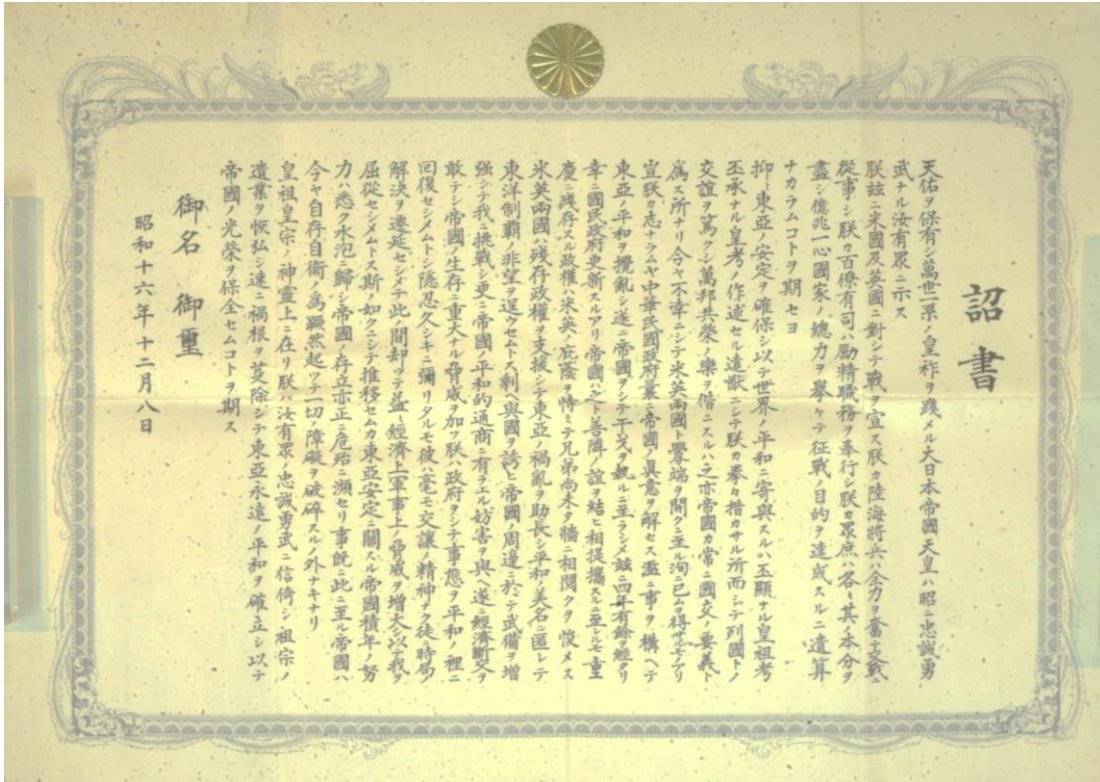 詔書
天佑ヲ保有シ萬世一系ノ皇祚ヲ踐メル大日本帝國天皇ハ昭ニ忠誠勇
武ナル汝有眾ニ示ス
朕茲ニ米國及英國ニ對シテ戰ヲ宣ス朕カ陸海將兵ハ全力ヲ奮テ交戰ニ
從事シ朕カ百僚有司ハ勵精職務ヲ奉行シ朕カ眾庶ハ各〻其ノ本分ヲ
盡シ億兆一心國家ノ總力ヲ擧ケテ征戰ノ目的ヲ達成スルニ遺算
ナカラムコトヲ期セヨ
抑〻東亞ノ安定ヲ確保シ以テ世界ノ平和ニ寄與スルハ丕顯ナル皇祖考
丕承ナル皇考ノ作述セル遠猷ニシテ朕カ拳々措カサル所而シテ列國トノ
交誼ヲ篤クシ萬邦共榮ノ樂ヲ偕ニスルハ之亦帝國カ常ニ國交ノ要義ト
爲ス所ナリ今ヤ不幸ニシテ米英兩國ト釁端ヲ開クニ至ル洵ニ已ムヲ得サルモノアリ
豈朕カ志ナラムヤ中華民國政府曩ニ帝國ノ眞意ヲ解セス濫ニ事ヲ構ヘテ
東亞ノ平和ヲ攪亂シ遂ニ帝國ヲシテ干戈ヲ執ルニ至ラシメ茲ニ四年有餘ヲ經タリ
幸ニ國民政府更新スルアリ帝國ハ之ト善隣ノ誼ヲ結ヒ相提攜スルニ至レルモ重
慶ニ殘存スル政權ハ米英ノ庇蔭ヲ恃ミテ兄弟尚未タ牆ニ相鬩クヲ悛メス
米英兩國ハ殘存政權ヲ支援シテ東亞ノ禍亂ヲ助長シ平和ノ美名ニ匿レテ
東洋制覇ノ非望ヲ逞ウセムトス剩ヘ與國ヲ誘ヒ帝國ノ周邊ニ於テ武備ヲ增
强シテ我ニ挑戰シ更ニ帝國ノ平和的通商ニ有ラユル妨害ヲ與ヘ遂ニ經濟斷交ヲ
敢テシ帝國ノ生存ニ重大ナル脅威ヲ加フ朕ハ政府ヲシテ事態ヲ平和ノ裡ニ
回復セシメムトシ隱忍久シキニ彌リタルモ彼ハ毫モ交讓ノ精神ナク徒ニ時局ノ
解決ヲ遷延セシメテ此ノ間却ッテ益〻經濟上軍事上ノ脅威ヲ增大シ以テ我ヲ
屈從セシメムトス斯ノ如クニシテ推移セムカ東亞安定ニ關スル帝國積年ノ努
力ハ悉ク水泡ニ歸シ帝國ノ存立亦正ニ危殆ニ瀕セリ事旣ニ此ニ至ル帝國ハ
今ヤ自存自衞ノ爲蹶然起ッテ一切ノ障礙ヲ破碎スルノ外ナキナリ
皇祖皇宗ノ神靈上ニ在リ朕ハ汝有眾ノ忠誠勇武ニ信倚シ祖宗ノ
遺業ヲ恢弘シ速ニ禍根ヲ芟除シテ東亞永遠ノ平和ヲ確立シ以テ
帝國ノ光榮ヲ保全セムコトヲ期ス
御名 御璽
昭和十六年十二月八日